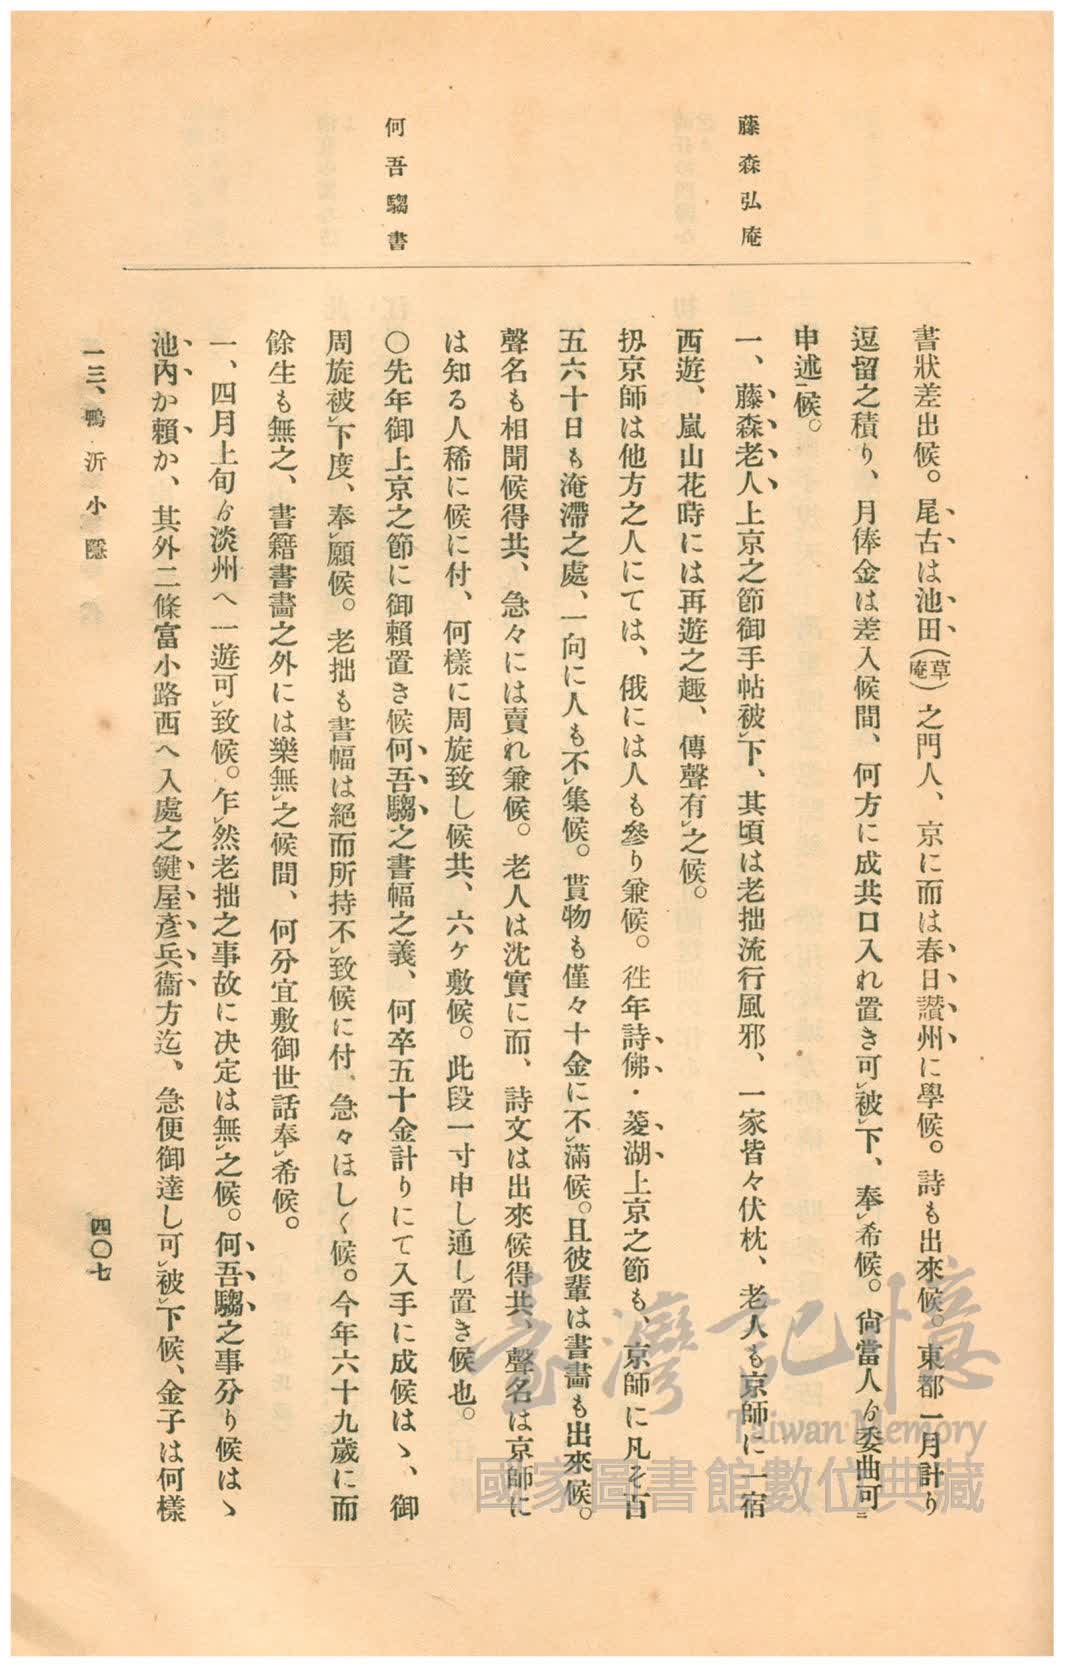 藤森弘庵
何吾騶書
書狀差出候。尾古は池田（草庵）之門人、京に而は春日讃州に學候。詩も出來候。東都一月計り
逗留之積り、月俸金は差入候間、何方に成共口入れ置き可㆑被㆑下、奉㆑希候。尙當人ゟ委曲可㆓
申述㆒候。
一、藤森老人上京之節御手帖被㆑下、其頃は老拙流行風邪、一家皆々伏枕、老人も京師に一宿
西遊、嵐山花時には再遊之趣、傳聲有㆑之候。
扨京師は他方之人にては、俄には人も參り兼候。徃年詩佛・菱湖上京之節も、京師に凡そ百
五六十日も淹滯之處、一向に人も不㆑集候。貰物も僅々十金に不㆑滿候。且彼輩は書畵も出來候。
聲名も相聞候得共、急々には賣れ兼候。老人は沈實に而、詩文は出來候得共、聲名は京師に
は知る人稀に候に付、何樣に周旋致し候共、六ヶ敷候。此段一寸申し通し置き候也。
〇先年御上京之節に御賴置き候何吾騶之書幅之義、何卒五十金計りにて入手に成候はゝ、御
周旋被㆑下度、奉㆑願候。老拙も書幅は絕而所持不㆑致候に付、急々ほしく候。今年六十九歲に而
餘生も無之、書籍書畵之外には樂無㆑之候間、何分宜敷御世話奉㆑希候。
一、四月上旬ゟ淡州へ一遊可㆑致候。乍㆑然老拙之事故に決定は無㆑之候。何吾騶之事分り候はゝ
池內か賴か、其外二條富小路西へ入處之鍵屋彥兵衞方迄、急便御達し可㆑被㆑下候、金子は何樣
一三、鴨沂小隱
四〇七
臺灣記憶
Taiwan Memory
國家圖書館數位典藏